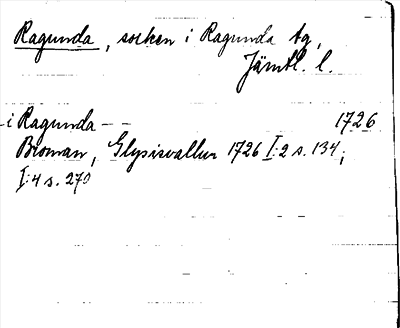 Ragunda, socken i Ragunda tg,
Jämtl. l.
i Ragunda - - 1726
Broman, Glysisvallur 1726 I:2 s. 134;
I:4 s. 270